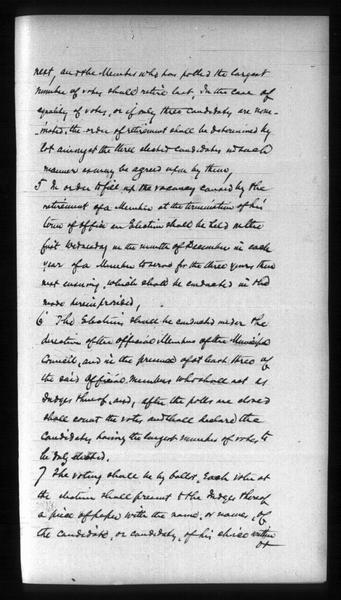 next, and the Member who has polled the largest
number of votes shall retire last. In the case of
equality of votes, or if only three Candidates are nom-
-inated, the order of retirement shall be determined by
lot amongst the three elected Candidates in such
manner as may be agreed upon by them,
5 In order to fill up the vacancy caused by the
retirement of a Member at the termination of his
term of office an Election shall be held on the
first Wednesday in the month of December in each
year of a Member to serve for the three years then
next ensuing, which shall be conducted in the
mode herein provided,
6 The Elections shall be conducted under the
direction of the official Members of the Municipal
Council, and in the presence of at least three of
the said Official Members who shall act as
Judges thereof, and, after the polls are closed
shall count the votes and shall declare the
Candidates having the largest number of votes to
be duly elected.
7 The voting shall be by ballot. Each voter at
the election shall present to the Judges thereof
a piece of paper with the name, or names, of
the candidate, or candidates, of his choice written